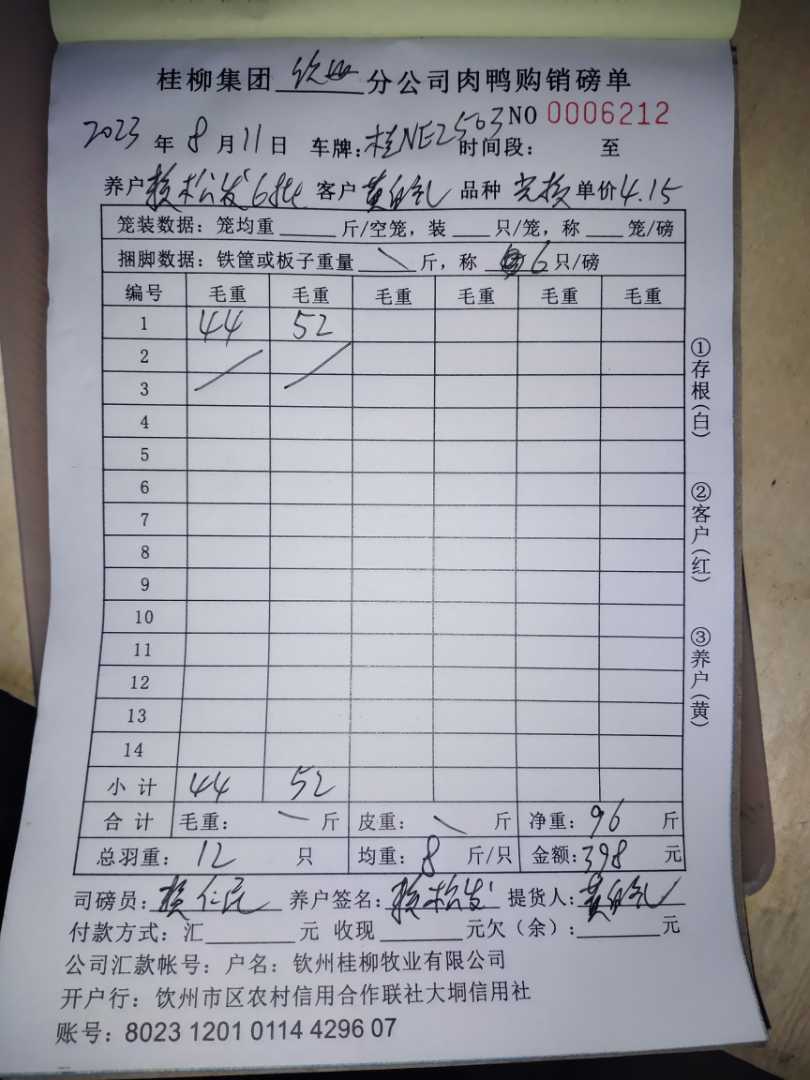 桂柳集团 钦州 分公司肉鸭购销磅单
NO 0006212
2023 年 8 月 11 日 车牌: 桂NE2503 时间段: 至
养户 松发 6批 客户 黄 品种 单价 4.15
笼装数据: 笼均重 斤/空笼, 装 只/笼, 称 笼/磅
捆脚数据: 铁筐或板子重量 \ 斤, 称 6 只/磅
编号 毛重 毛重 毛重 毛重 毛重 毛重
1 44 52
2
3
4
5
6
7
8
9
10
11
12
13
14
小计 44 52
合计 毛重: 斤 皮重: 斤 净重: 96 斤
总羽重: 12 只 均重: 8 斤/只 金额: 398 元
司磅员: 仁 养户签名: 松发 提货人: 黄
付款方式: 汇 元 收现 元欠(余): 元
公司汇款帐号: 户名: 钦州桂柳牧业有限公司
开户行: 钦州市区农村信用合作联社大垌信用社
账号: 8023 1201 0114 4296 07
①存根(白)
②客户(红)
③养户(黄)